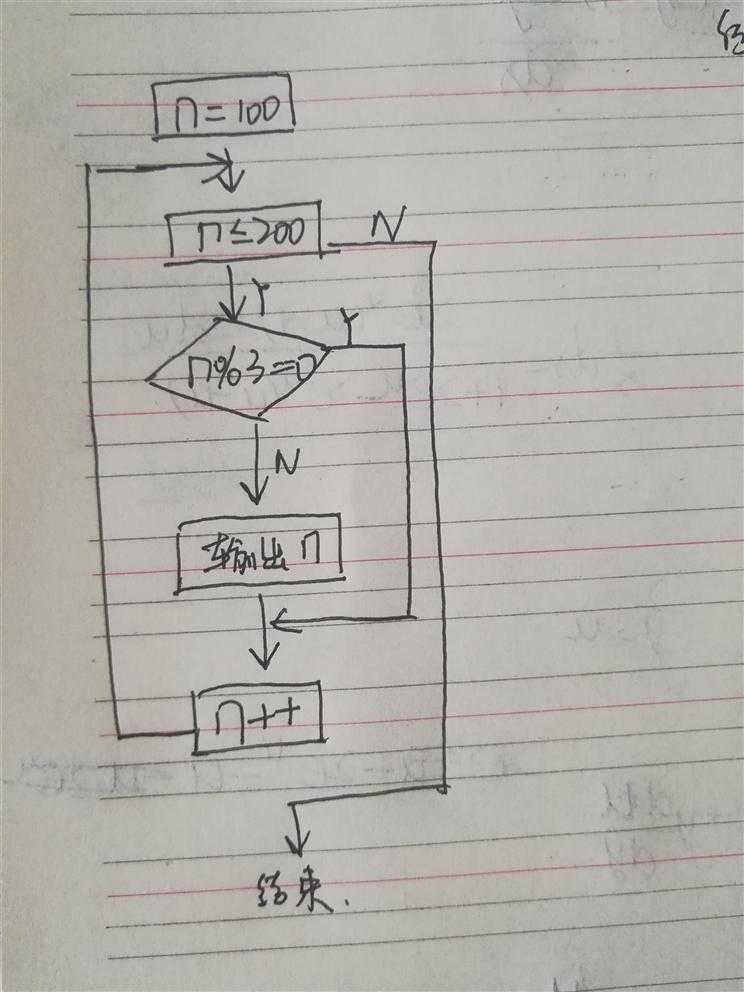 n=100
n≤200 N
Y
Y
n%3==0
N
输出 n
n++
结束.